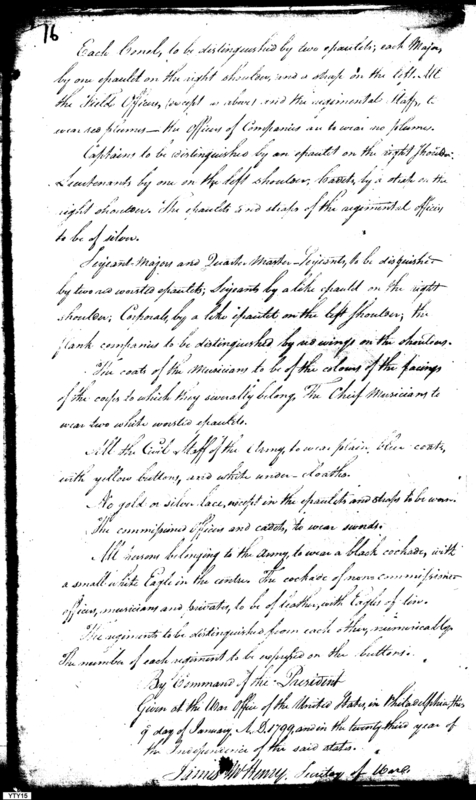 16
Each Conel, to be distinguished by two epaulets; each Major,
by one epaulet on the right shoulder, and a strap on the left. All
the Field Officers, (except as above) and the regimental Staff, to
wear red plumes — the Officers of Companies are to wear no plumes.
Captains to be distinguished by an epaulet on the right shoulder.
Lieutenants by one on the left shoulder; Cadets, by a strap on the
right shoulder. The epaulets and straps of the regimental officers
to be of silver.
Serjeant-Majors and Quarter Master-Serjeants, to be distinguished
by two red worsted epaulets; Serjeants by a like epaulet on the right
shoulder; Corporals, by a like epaulet on the left shoulder; the
flank companies to be distinguished by red wings on the shoulders.
The coats of the Musicians to be of the colours of the facings
of the corps to which they severally belong. The Chief Musicians to
wear two white worsted epaulets.
All the Civil Staff of the Army, to wear plain blue coats,
with yellow buttons, and white under cloaths.
No gold or silver lace, except in the epaulets and straps to be worn.
The commissioned officers and cadets, to wear swords.
All persons belonging to the Army, to wear a black cockade, with
a small white Eagle in the centre. The cockade of noncommissioned
officers, musicians and privates, to be of leather, with Eagles of tin.
The regiments to be distinguished from each other, numerically.
The number of each regiment to be expressed on the buttons.
By Command of the President
Given at the War Office of the United States, in Philadelphia, this
9 day of January A.D. 1799, and in the twenty third year of
the Independence of the said states.
James McHenry, Secretary of War.
YTY15